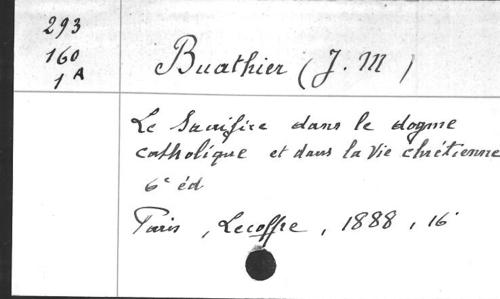 293
160
1 A
Buathier (J. M)
Le Sacrifice dans le dogme
catholique et dans la Vie chrétienne
6e éd
Paris, Lecoffre, 1888, 16°